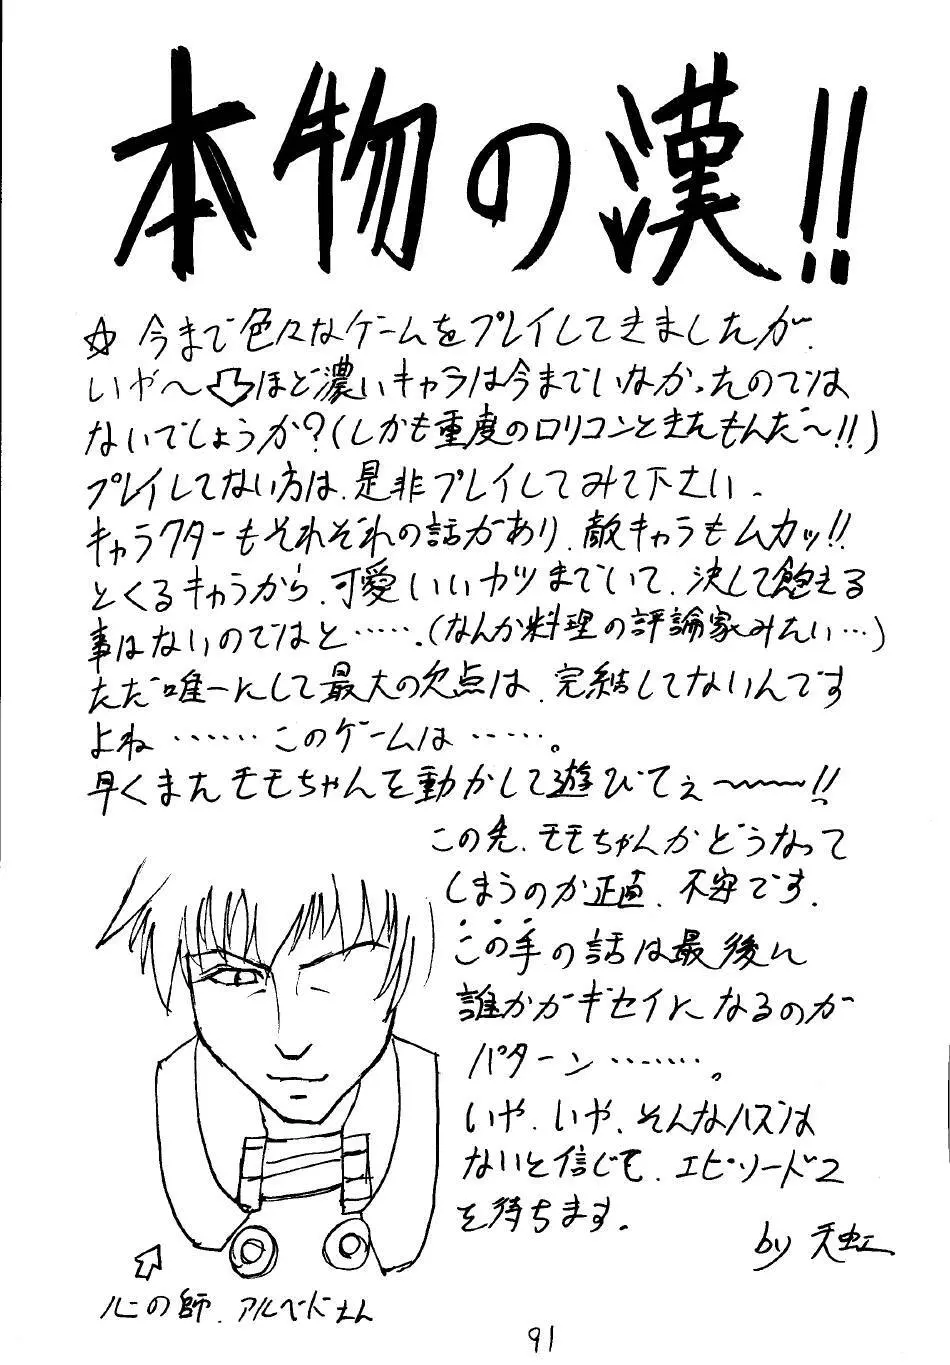 本物の漢!!
☆今まで色々なゲームをプレイしてきましたが、
いや〜⇩ほど濃いキャラは今までいなかったのでは
ないでしょうか?(しかも重度のロリコンときたもんだ〜!!)
プレイしてない方は、是非プレイしてみて下さい。
キャラクターもそれぞれの話があり、敵キャラもムカッ!!
とくるキャラから、可愛いいヤツまでいて、決して飽える
事はないのではと……。(なんか料理の評論家みたい…)
ただ唯一にして最大の欠点は、完結してないんです
よね……このゲームは……。
早くまたモモちゃんを動かして遊びてぇ〜〜〜!!
この先、モモちゃんがどうなって
しまうのか正直、不安です。
この手の話は最後に
誰かがギセイになるのが
パターン……。
いや、いや、そんなハズは
ないと信じて、エピソード2
を待ちます。
by 天虹
心の師、アルベドさん
91